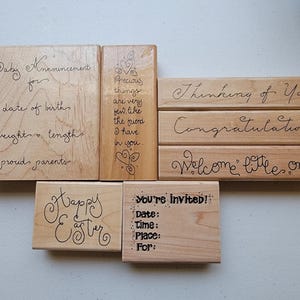 Baby Announcement
for
date of birth
weight & length
proud parents
Precious
things
are very
few like
the friend
I have
in you
Thinking of Yo
Congratulatio
Welcome little on
Happy
Easter
You're Invited!
Date:
Time:
Place:
For: